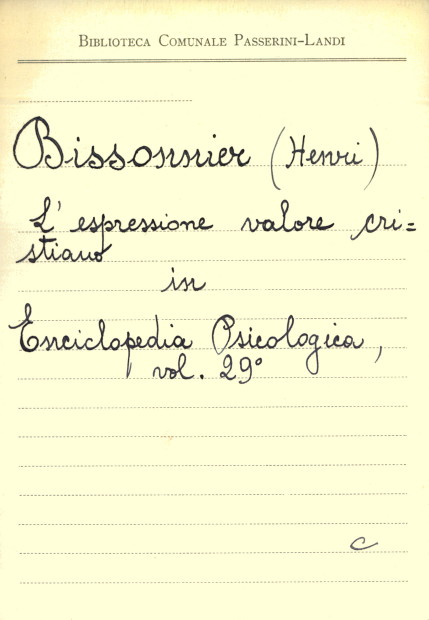 Biblioteca Comunale Passerini-Landi
Bissonnier (Henri)
L' espressione valore cri=
stiano
in
Enciclopedia Psicologica,
vol. 29°
C